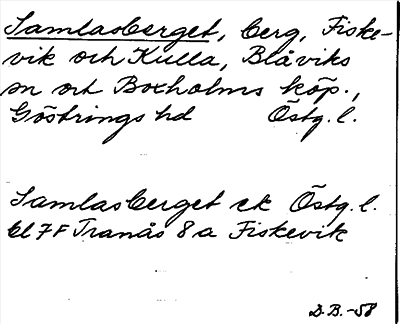 Samlasberget, berg, Fiske-
vik och Kulla, Blåviks
sn o Boxholms köp.,
Göstrings hd Östg. l.
Samlasberget ek Östg. l.
bl 7F Tranås 8a Fiskevik
D.B.-58